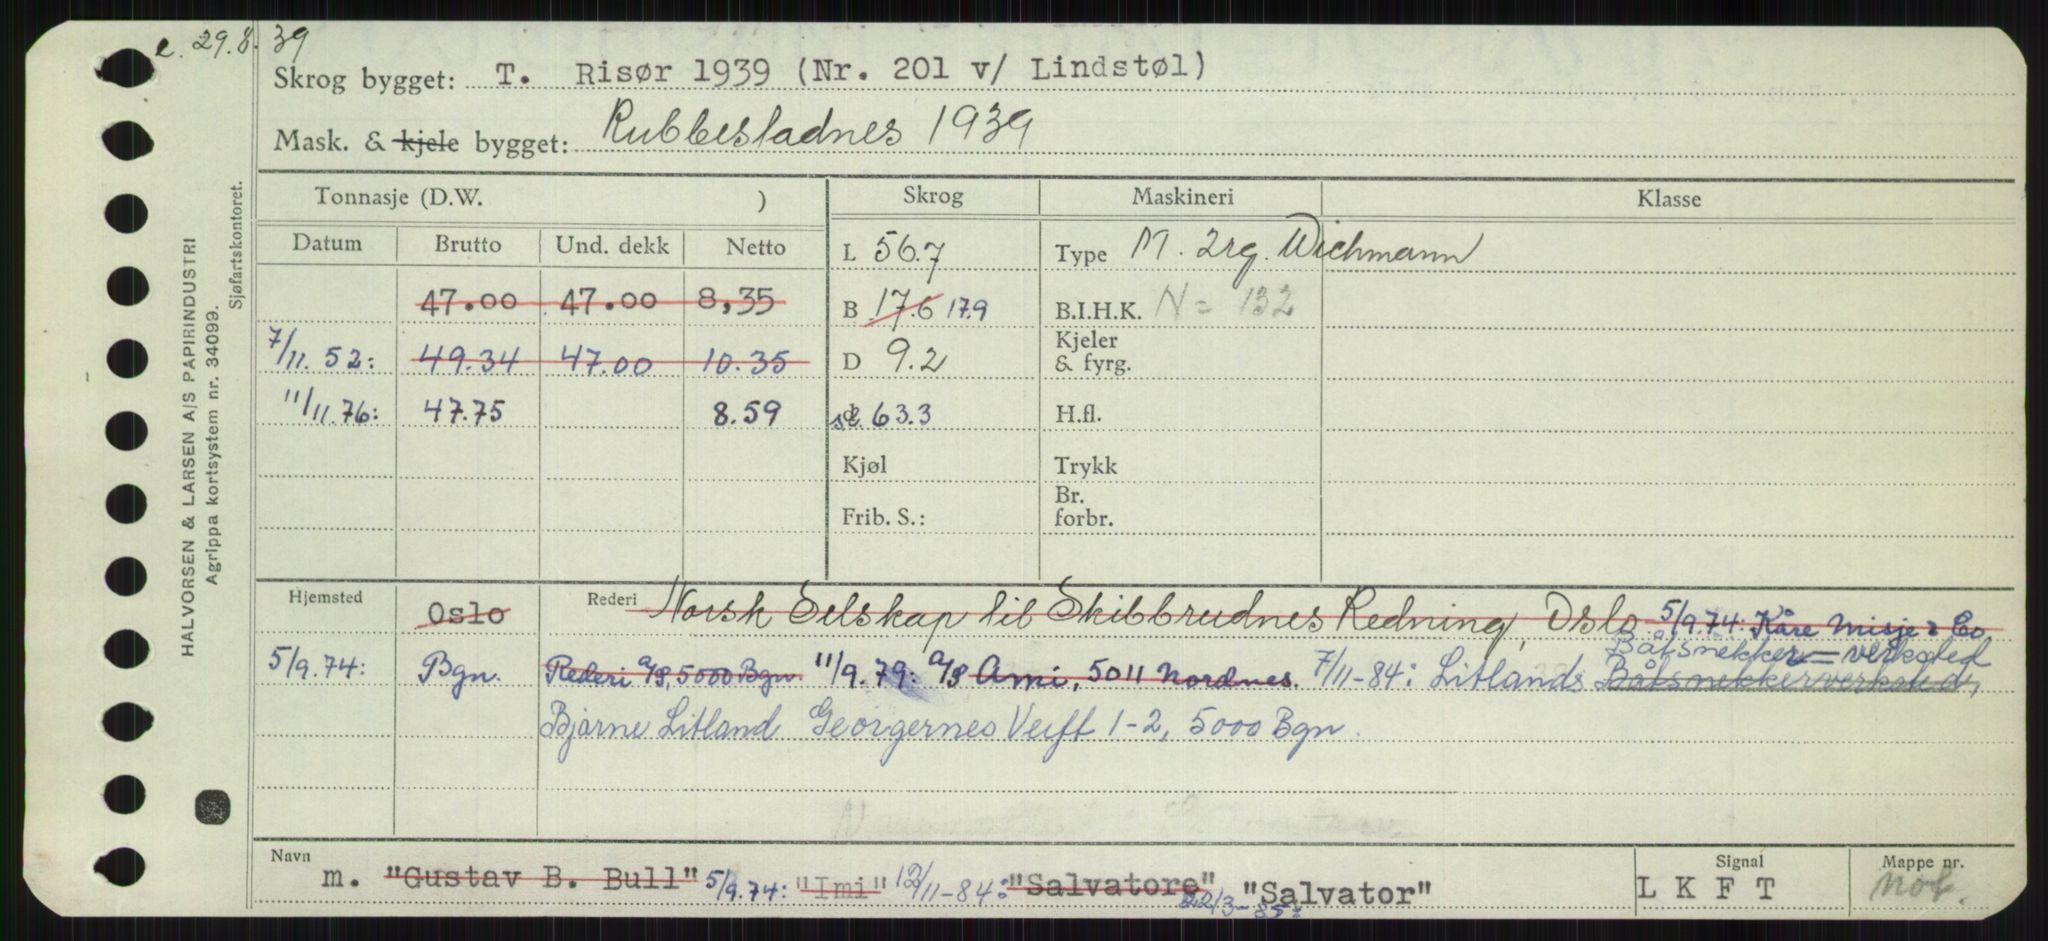 e. 29.8.39
Skrog bygget: T. Risør 1939 (Nr. 201 v/ Lindstøl)
Mask. & kjele bygget: Rubbestadnes 1939
HALVORSEN & LARSEN A/S PAPIRINDUSTRI
Agrippa kortsystem nr. 34099.
Sjøfartskontoret.
Tonnasje (D.W. ) Skrog Maskineri Klasse
Datum Brutto Und. dekk Netto
L 56.7 Type M. 2rg. Wichmann
47.00 47.00 8,35 B 17.6 17.9 B.I.H.K. N = 132
7/11. 52: 49.34 47.00 10.35 D 9.2 Kjeler & fyrg.
11/11.76: 47.75 8.59 sl. 63.3 H.fl.
Kjøl Trykk
Frib. S.: Br. forbr.
Hjemsted Oslo Rederi Norsk Selskap til Skibbrudnes Redning, Oslo 5/9.74: Kåre Misje & Co,
Båtsnekker=verksted
5/9.74: Bgn. Rederi A/S, 5000 Bgn. 11/9.79: A/S Ami, 5011 Nordnes. 7/11-84: Litlands Båtsnekkerverksted,
Bjarne Litland Georgernes Verft 1-2, 5000 Bgn.
Navn m. "Gustav B. Bull" 5/9.74: "Imi" 12/11-84: "Salvatore" 22/3-85: "Salvator"
Signal L K F T
Mappe nr. not.